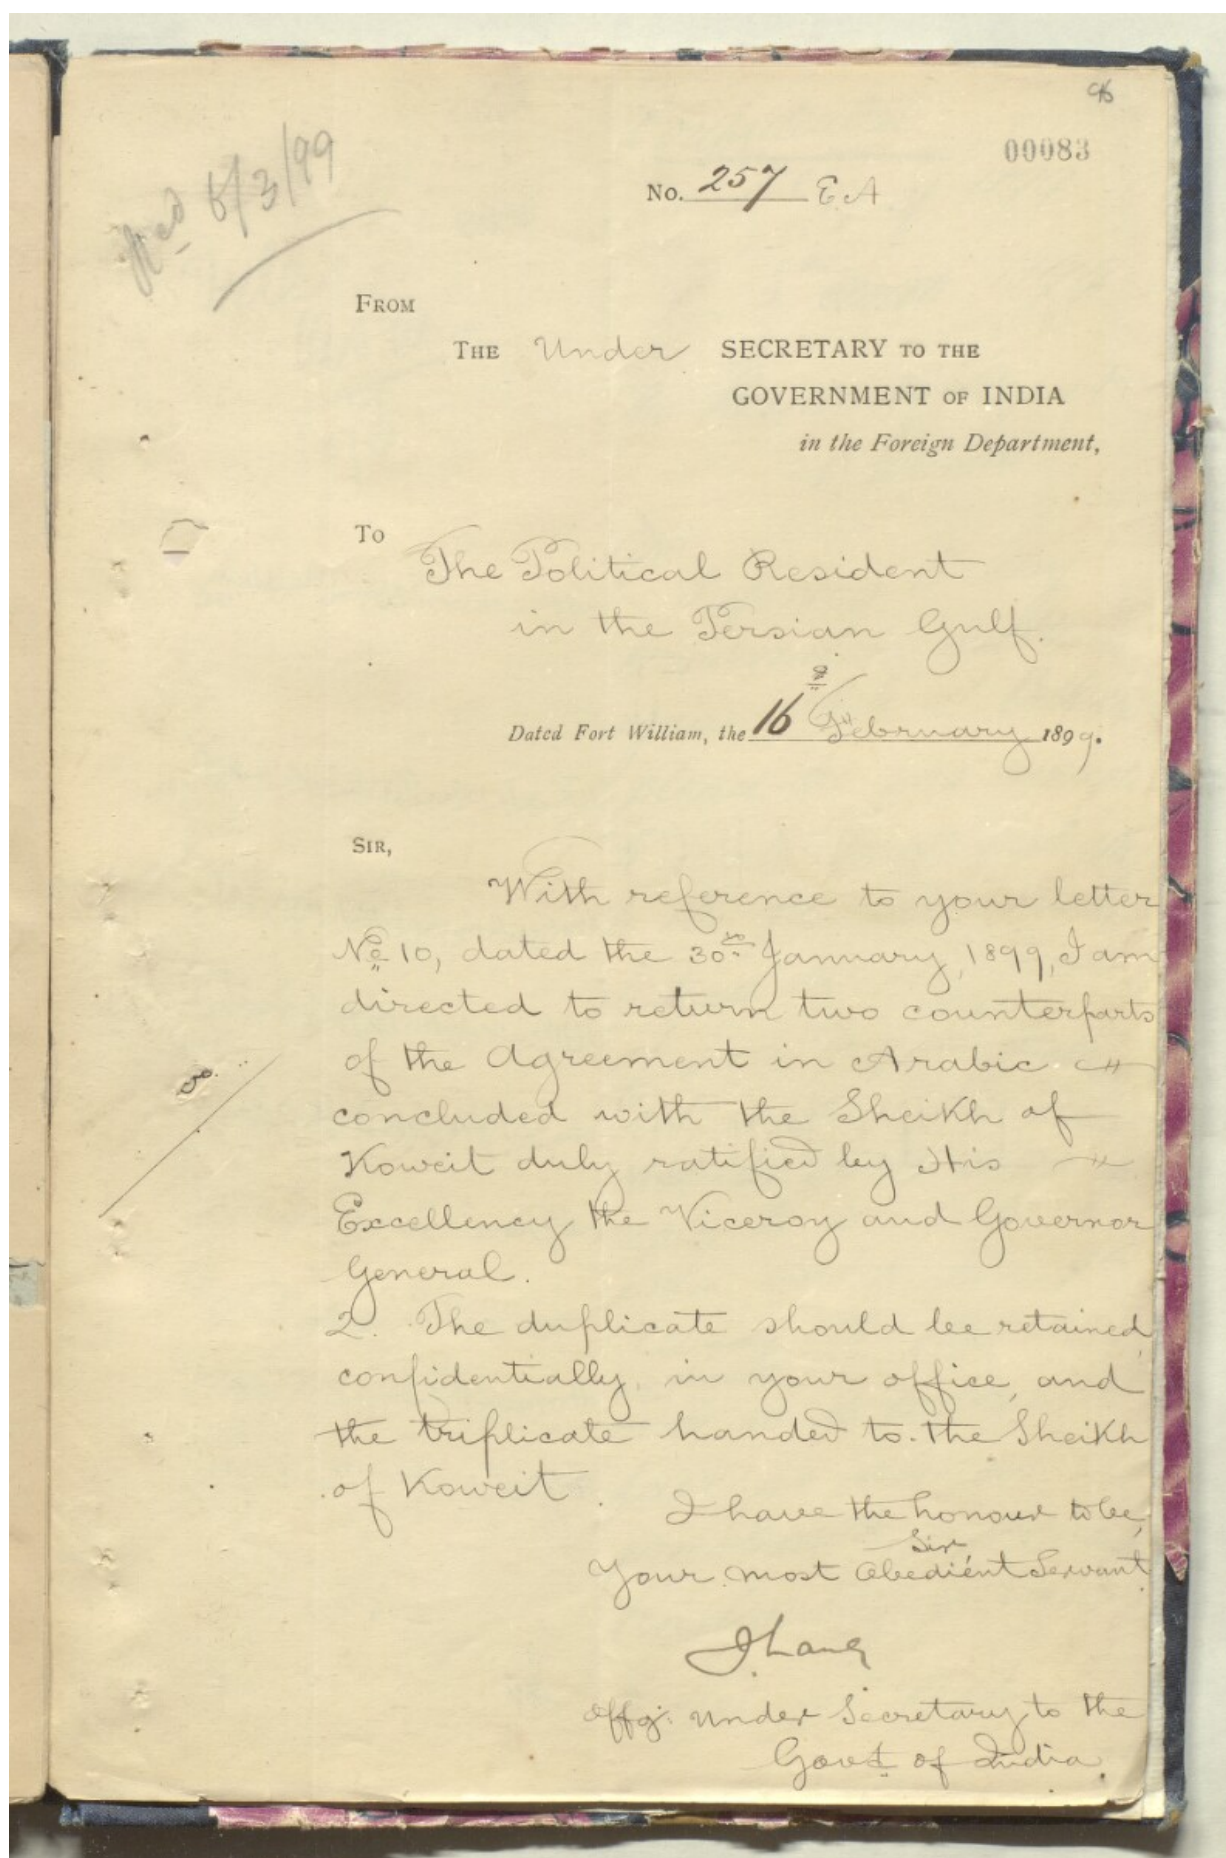 00083
No. 257 E.A
5/3/99
FROM
THE Under SECRETARY TO THE
GOVERNMENT OF INDIA
in the Foreign Department,
TO
The Political Resident
in the Persian Gulf.
Dated Fort William, the 16 February 1899.
SIR,
With reference to your letter
No. 10, dated the 30th January, 1899, I am
directed to return two counterparts
of the Agreement in Arabic
concluded with the Sheikh of
Koweit duly ratified by His
Excellency the Viceroy and Governor
General.
2. The duplicate should be retained
confidentially, in your office, and
the triplicate handed to the Sheikh
of Koweit.
I have the honour to be,
Sir,
Your most Obedient Servant
Offg: Under Secretary to the
Govt. of India.